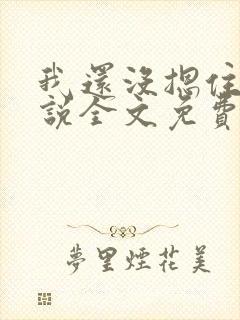 我還沒摁住
說全文免費
夢里煙花美